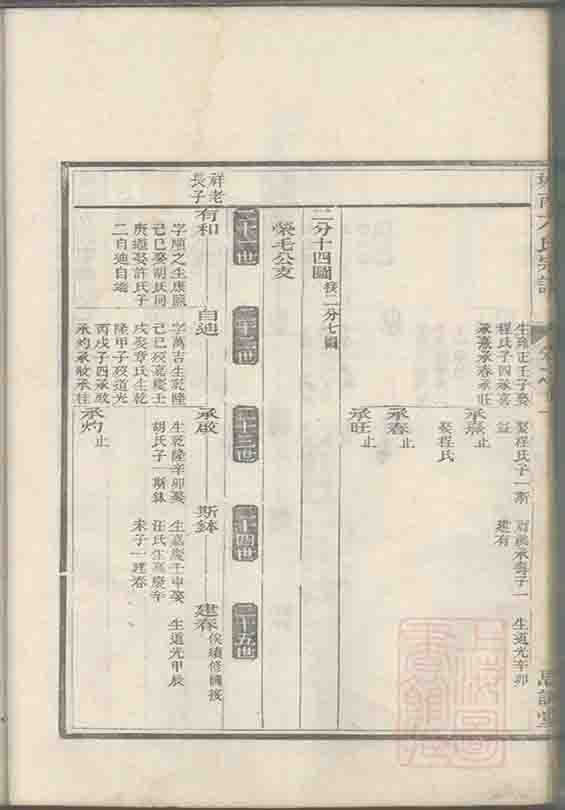 生雍正壬子娶
程氏子四承喜
承熹承春承旺
娶程氏子一斯
承熹止
娶程氏
承春止
承旺止
生道光辛卯
二分十四圖接二分七圖
榮毛公支
二十一世
二十二世
二十三世
二十四世
二十五世
祥老長子
有和
字順之生康熙
己巳娶胡氏同
庚繼娶許氏子
二自迪自端
自迪
字萬吉生乾隆
己巳歿嘉慶壬
戌娶章氏生乾
隆甲子歿道光
丙戌子四承啟
承灼承耿承桂
承啟
生乾隆辛卯娶
胡氏子一斯鉢
承灼止
斯鉢
生嘉慶壬申娶
汪氏生嘉慶辛
未子一建春
建春俟續修圖接
生道光甲辰
上海圖書館藏